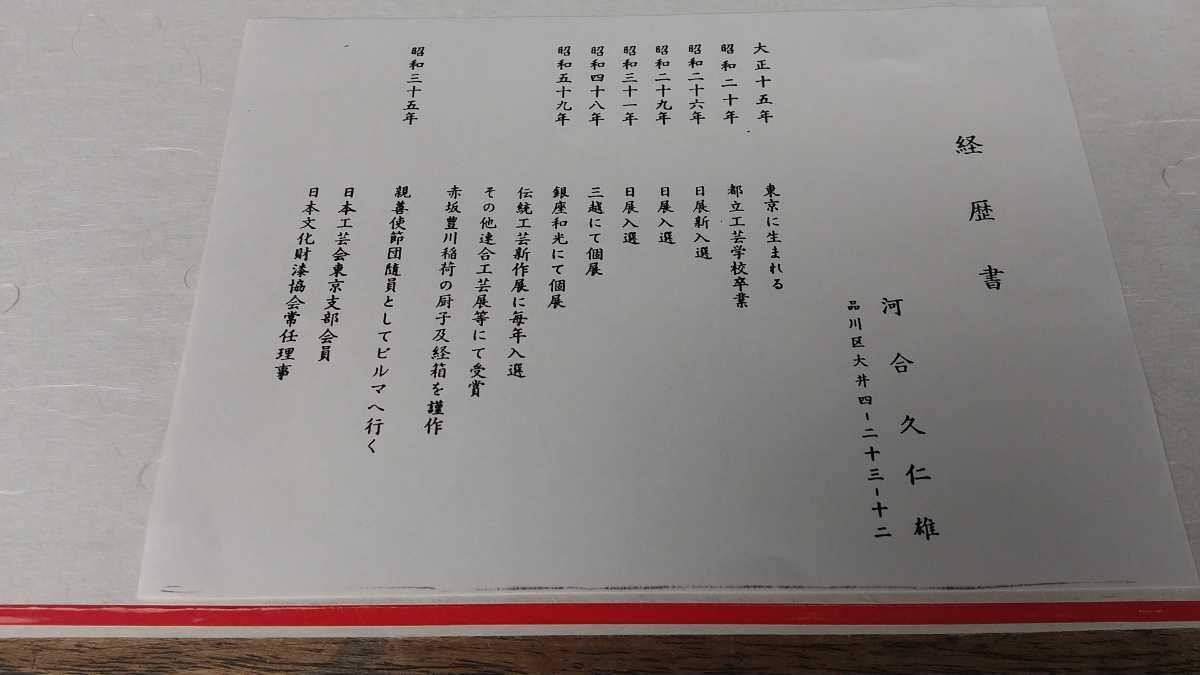 経歴書
河合久仁雄
品川区大井四ー二十三ー十二
大正十五年 東京に生まれる
昭和二十年 都立工芸学校卒業
昭和二十六年 日展新入選
昭和二十九年 日展入選
昭和三十一年 日展入選
昭和四十八年 三越にて個展
昭和五十九年 銀座和光にて個展
伝統工芸新作展に毎年入選
その他連合工芸展等にて受賞
赤坂豊川稲荷の厨子及経箱を謹作
昭和三十五年 親善使節団随員としてビルマへ行く
日本工芸会東京支部会員
日本文化財漆協会常任理事